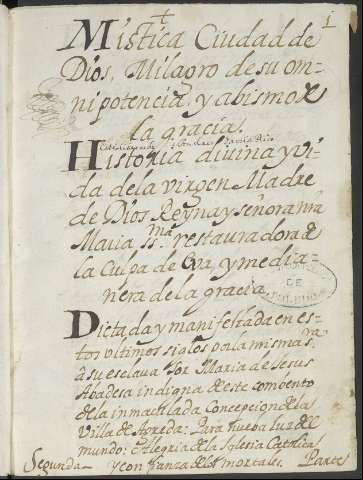 1
Mistica Ciudad de
Dios, Milagro de su om-
nipotencia, y abismo de
la gracia.
Historia divina, y vi-
da de la virgen Madre
de Dios Reyna y señora nra
Maria SSma. restauradora de
la Culpa de Eva, y media-
nera de la gracia.
Dictada y manifestada en es-
tos ultimos siglos por la misma sra
a su esclava Sor Maria de Jesus
Abadesa indigna de este combento
de la inmaculada Concepcion de la
Villa de Agreda: Para nueva luz del
mundo: Alegria de la Iglesia Catolica:
Segunda y confianza de los mortales. Parte
DE